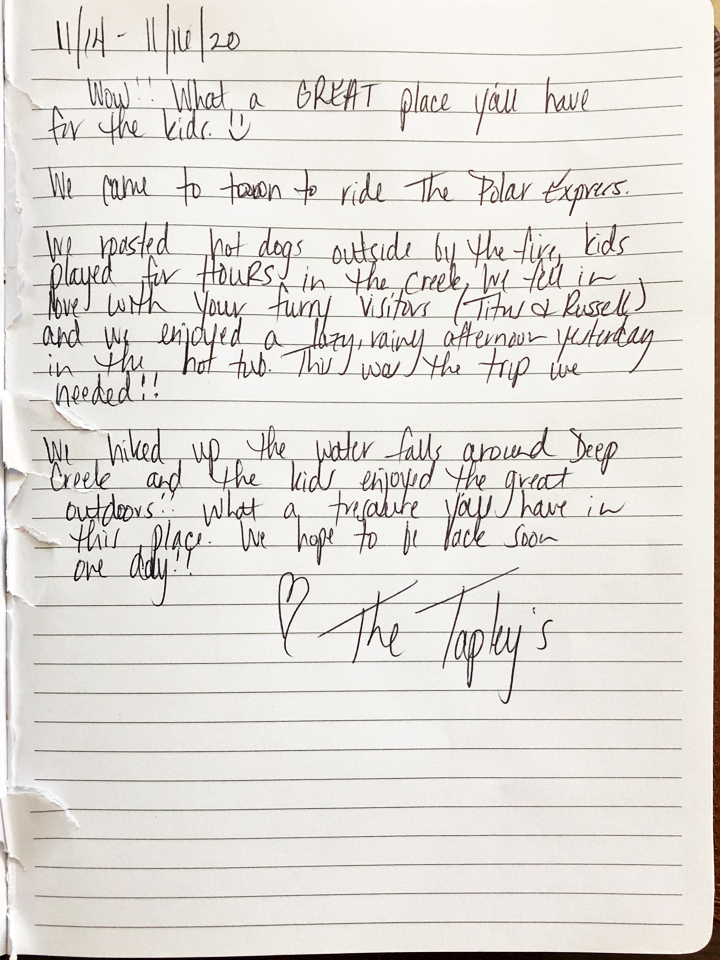 11/14 - 11/16/20
Wow!! What a GREAT place y'all have
for the kids. :)
We came to town to ride The Polar Express.
We roasted hot dogs outside by the fire, kids
played for HOURS in the creek, we fell in
love with your furry visitors (Titus & Russell)
and we enjoyed a lazy, rainy afternoon yesterday
in the hot tub. This was the trip we
needed!!
We hiked up the water falls around Deep
Creek and the kids enjoyed the great
outdoors!! What a treasure yall have in
this place. We hope to be back soon
one day!!
♡ The Tapley's